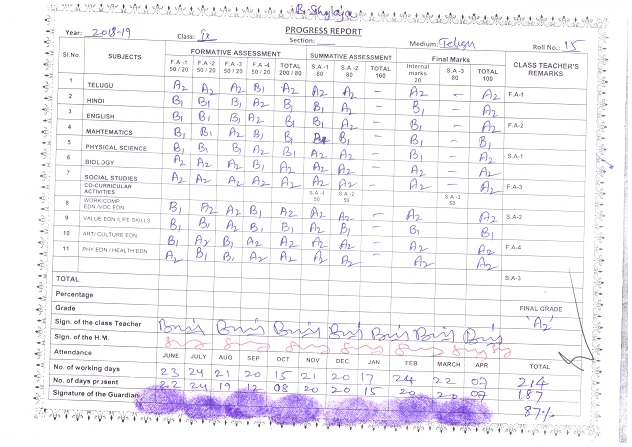 PROGRESS REPORT
Year: 2018-19 Class: Section: Medium: Telugu Roll No.: 15
Sl.No. SUBJECTS FORMATIVE ASSESSMENT SUMMATIVE ASSESSMENT Final Marks CLASS TEACHER'S REMARKS
F.A-1 50/20 F.A-2 50/20 F.A-3 50/20 F.A-4 50/20 TOTAL 200/80 S.A-1 80 S.A-2 80 TOTAL 160 Internal marks 20 S.A-3 80 TOTAL 100
1 TELUGU A2 A2 A2 B1 A2 A2 A2 - A2 - A2 F.A-1
2 HINDI B1 B1 B1 A2 B1 B1 A2 - B1 - A2
3 ENGLISH B1 B1 B1 A2 B1 A2 A2 - A2 - A2 F.A-2
4 MATHEMATICS B1 B1 A2 B1 B1 B1 - B1 - B1
5 PHYSICAL SCIENCE B1 B1 B1 A2 B1 A2 A2 - B1 - A2 S.A-1
6 BIOLOGY A2 A2 A2 B1 A2 A2 A2 - A2 - A2
7 SOCIAL STUDIES A2 A2 A2 A2 A2 A2 A2 - A2 - A2 F.A-3
CO-CURRICULAR ACTIVITIES S.A-1 50 S.A-2 50 S.A-3 50
8 WORK/COMP EDN /VOC EDN B1 A2 A2 B1 A2 A2 A2 - A2 A2 S.A-2
9 VALUE EDN /LIFE SKILLS B1 B1 A2 B1 A2 A2 B1 - B1 B1
10 ART/ CULTURE EDN B1 A2 B1 A2 A2 A2 A2 - A2 A2 F.A-4
11 PHY EDN / HEALTH EDN A2 B1 B1 A2 A2 A2 A2 - A2 A2
S.A-3
TOTAL
Percentage
Grade FINAL GRADE
'A2'
Sign. of the class Teacher
Sign. of the H.M.
Attendance JUNE JULY AUG SEP OCT NOV DEC JAN FEB MARCH APR TOTAL
No. of working days 23 24 21 20 15 21 20 17 24 22 07 214
No. of days present 22 24 19 12 08 20 20 15 20 20 07 187
Signature of the Guardian 87%